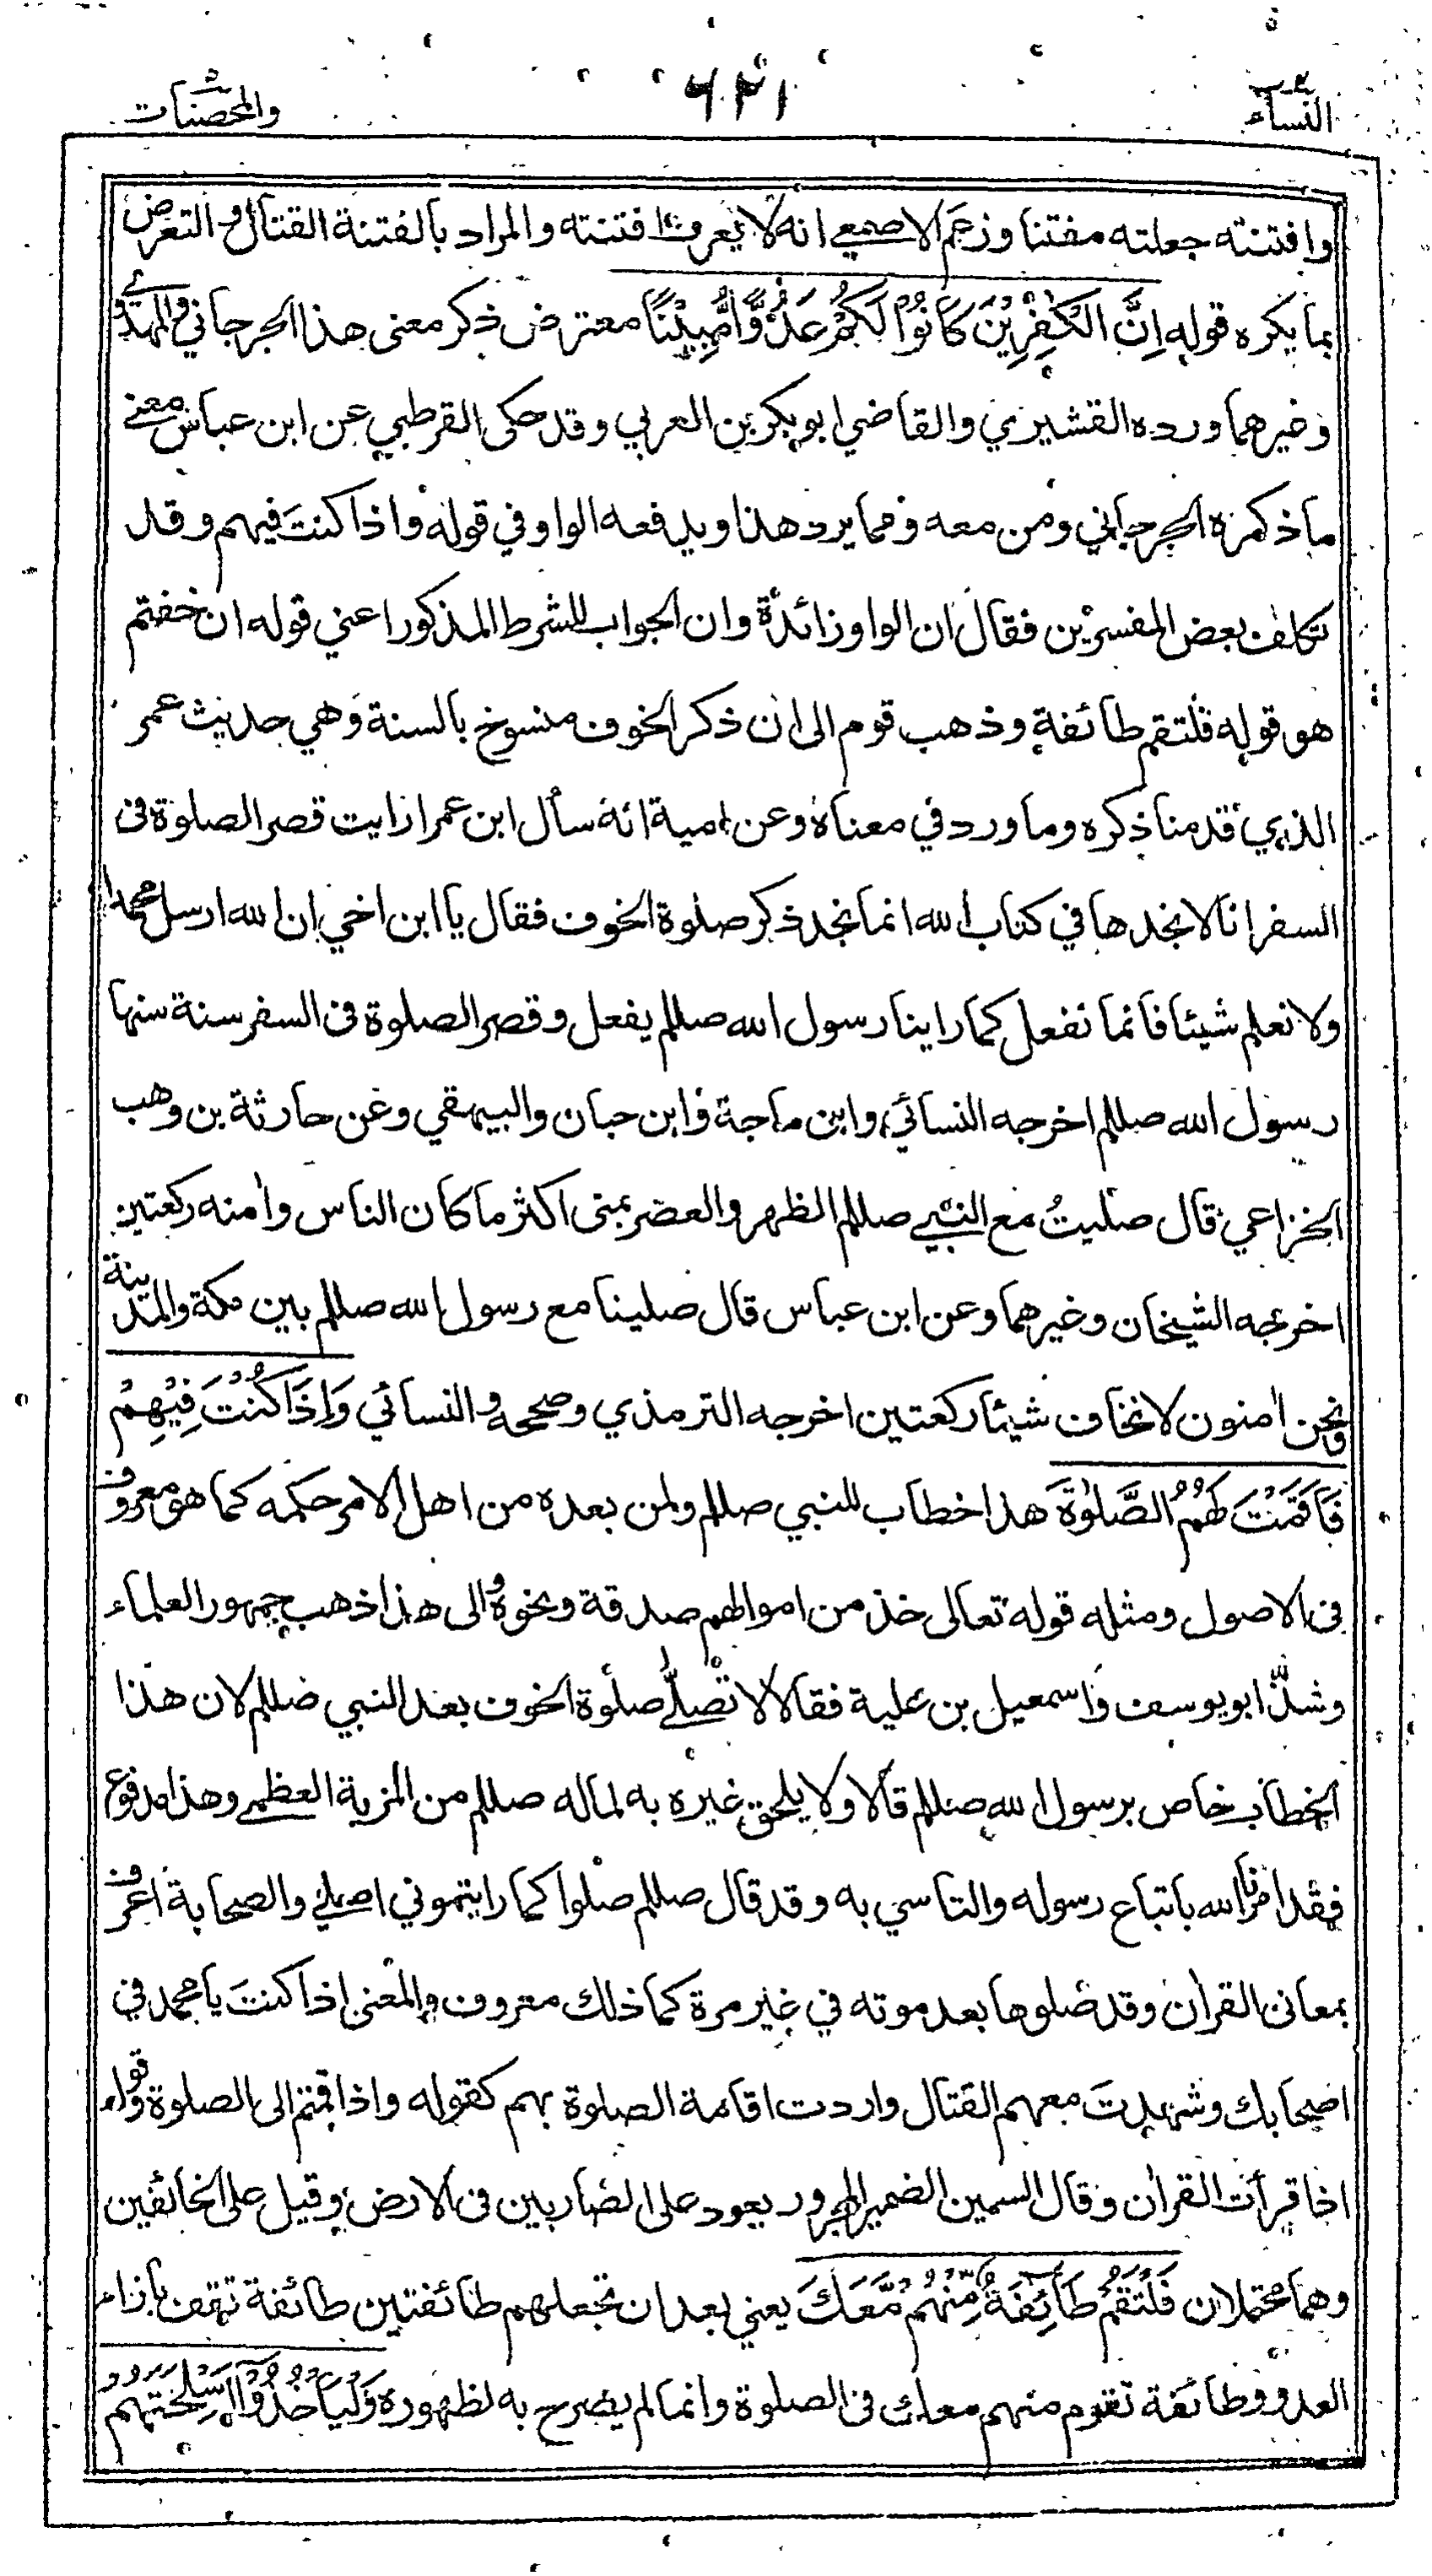 النساء ٦٢١ والمحصنات
وافتنته جعلته مفتنا وزعم الاصمعي انه لا يعرف افتنته والمراد بالفتنة القتال والتعرض
بما يكره قوله اِنَّ الْكٰفِرِيْنَ كَانُوْا لَكُمْ عَدُوًّا مُّبِيْنًا معترض ذكر معنى هذا الجرجاني والمهدوي
وغيرهما ورده القشيري والقاضي ابو بكر بن العربي وقد حكى القرطبي عن ابن عباس معنى
ما ذكره الجرجاني ومن معه ومما يرد هذا ويدفعه الواو في قوله واذا كنت فيهم وقد
تكلف بعض المفسرين فقال ان الواو زائدة وان الجواب للشرط المذكور اعني قوله ان خفتم
هو قوله فلتقم طائفة وذهب قوم الى ان ذكر الخوف منسوخ بالسنة وهي حديث عمر
الذي قدمنا ذكره وما ورد في معناه وعن امية انه سأل ابن عمر ارايت قصر الصلوة في
السفر انا لا نجدها في كتاب الله انما نجد ذكر صلوة الخوف فقال يا ابن اخي ان الله ارسل محمدا
ولا نعلم شيئا فانما نفعل كما راينا رسول الله صللم يفعل وقصر الصلوة في السفر سنة سنها
رسول الله صللم اخرجه النسائي وابن ماجة وابن حبان والبيهقي وعن حارثة بن وهب
الخزاعي قال صليتُ مع النبي صللم الظهر والعصر بمنى اكثر ما كان الناس وامنه ركعتين
اخرجه الشيخان وغيرهما وعن ابن عباس قال صلينا مع رسول الله صللم بين مكة والمدينة
ونحن امنون لا نخاف شيئا ركعتين اخرجه الترمذي وصححه والنسائي وَاِذَا كُنْتَ فِيْهِمْ
فَاَقَمْتَ لَهُمُ الصَّلٰوةَ هذا خطاب للنبي صللم ولمن بعده من اهل الامر حكمه كما هو معروف
في الاصول ومثله قوله تعالى خذ من اموالهم صدقة ونحوه والى هذا ذهب جمهور العلماء
وشذّ ابو يوسف واسمعيل بن علية فقالا لا تصلى صلوة الخوف بعد النبي صللم لان هذا
الخطاب خاص برسول الله صللم قالا ولا يلحق غيره به لما له صللم من المزية العظمى وهذا مدفوع
فقد امرنا الله باتباع رسوله والتاسي به وقد قال صللم صلوا كما رايتموني اصلي والصحابة اعرف
بمعاني القران وقد صلوها بعد موته في غير مرة كما ذلك معروف والمعنى اذا كنت يا محمد في
اصحابك وشهدت معهم القتال واردت اقامة الصلوة بهم كقوله واذا قمتم الى الصلوة وقوله
اذا قرأت القران وقال السمين الضمير المجرور يعود على الضاربين في الارض وقيل على الخائفين
وهما محتملان فَلْتَقُمْ طَآئِفَةٌ مِّنْهُمْ مَّعَكَ يعني بعد ان تجعلهم طائفتين طائفة تقف بازاء
العدو وطائفة تقوم منهم معك في الصلوة وانما لم يصرح به لظهوره وَلْيَاْخُذُوْۤا اَسْلِحَتَهُمْ